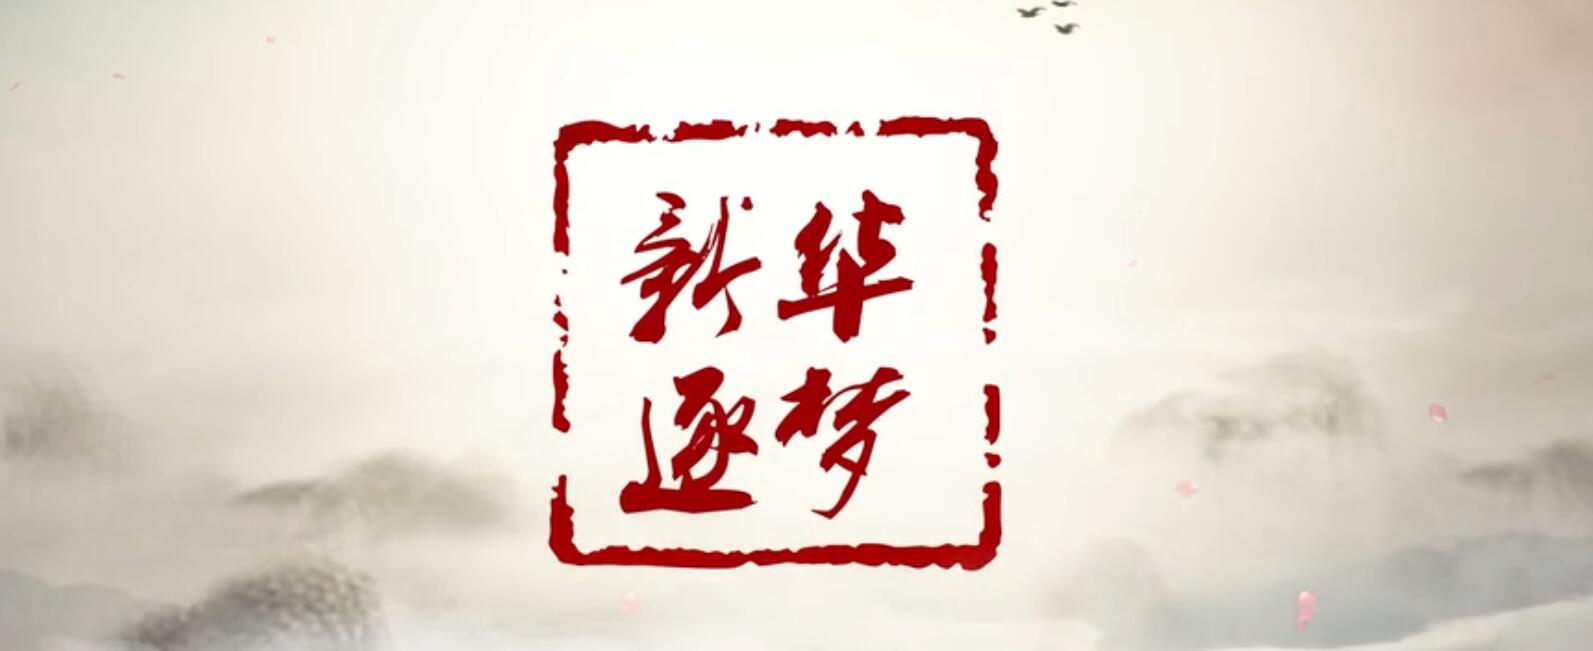 新华
逐梦